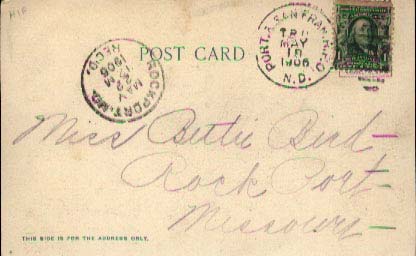 POST CARD
PORT. & SAN FRAN. R.P.O.
TR 11
MAY
18
1906
N.D.
ROCKPORT, MO.
MAY
22
1906
REC'D.
Miss Bettie Bird-
Rock Port-
Missouri-
THIS SIDE IS FOR THE ADDRESS ONLY.